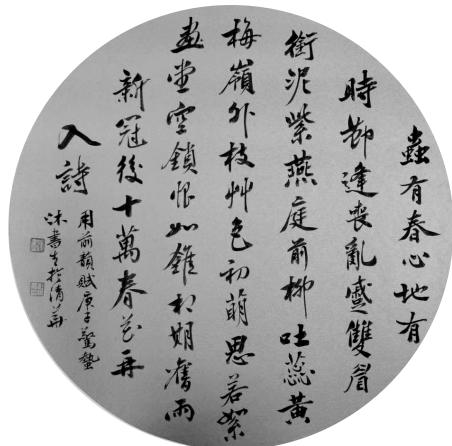 蟲有春心地有
時卻逢喪亂蹙雙眉
銜泥紫燕庭前柳吐蕊黃
梅嶺外枝艸色初萌思若絮
畫堂空鎖恨如錐相期舊雨
新冠後十萬春花再
入詩
用前韻賦庚子驚蟄
沐書生於清華